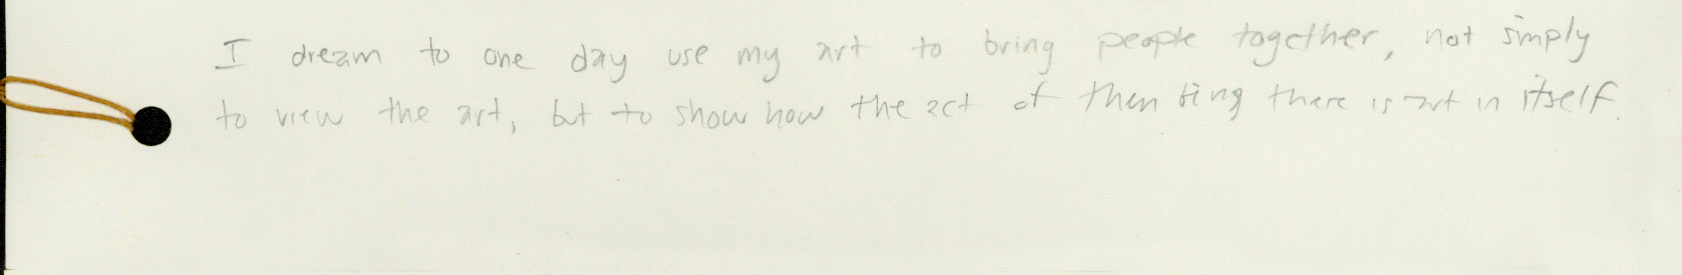 I dream to one day use my art to bring people together, not simply
to view the art, but to show how the act of them being there is art in itself.